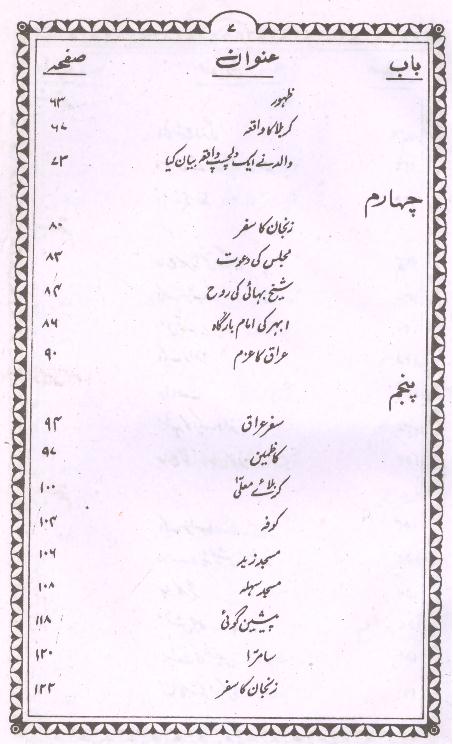 ۷
باب عنوان صفحہ
ظہور ۶۳
کربلا کا واقعہ ۶۷
والد نے ایک دلچسپ واقعہ بیان کیا ۷۳
چہارم
زنجان کا سفر ۸۰
مجلس کی دعوت ۸۳
شیخ بہائی کی روح ۸۴
ابہر کی امام بارگاہ ۸۶
عراق کا عزم ۹۰
پنجم
سفر عراق ۹۴
کاظمین ۹۷
کربلائے معلیٰ ۱۰۰
کوفہ ۱۰۴
مسجد زید ۱۰۶
مسجد سہلہ ۱۰۸
پیشین گوئی ۱۱۸
سامرّا ۱۲۰
زنجان کا سفر ۱۲۲